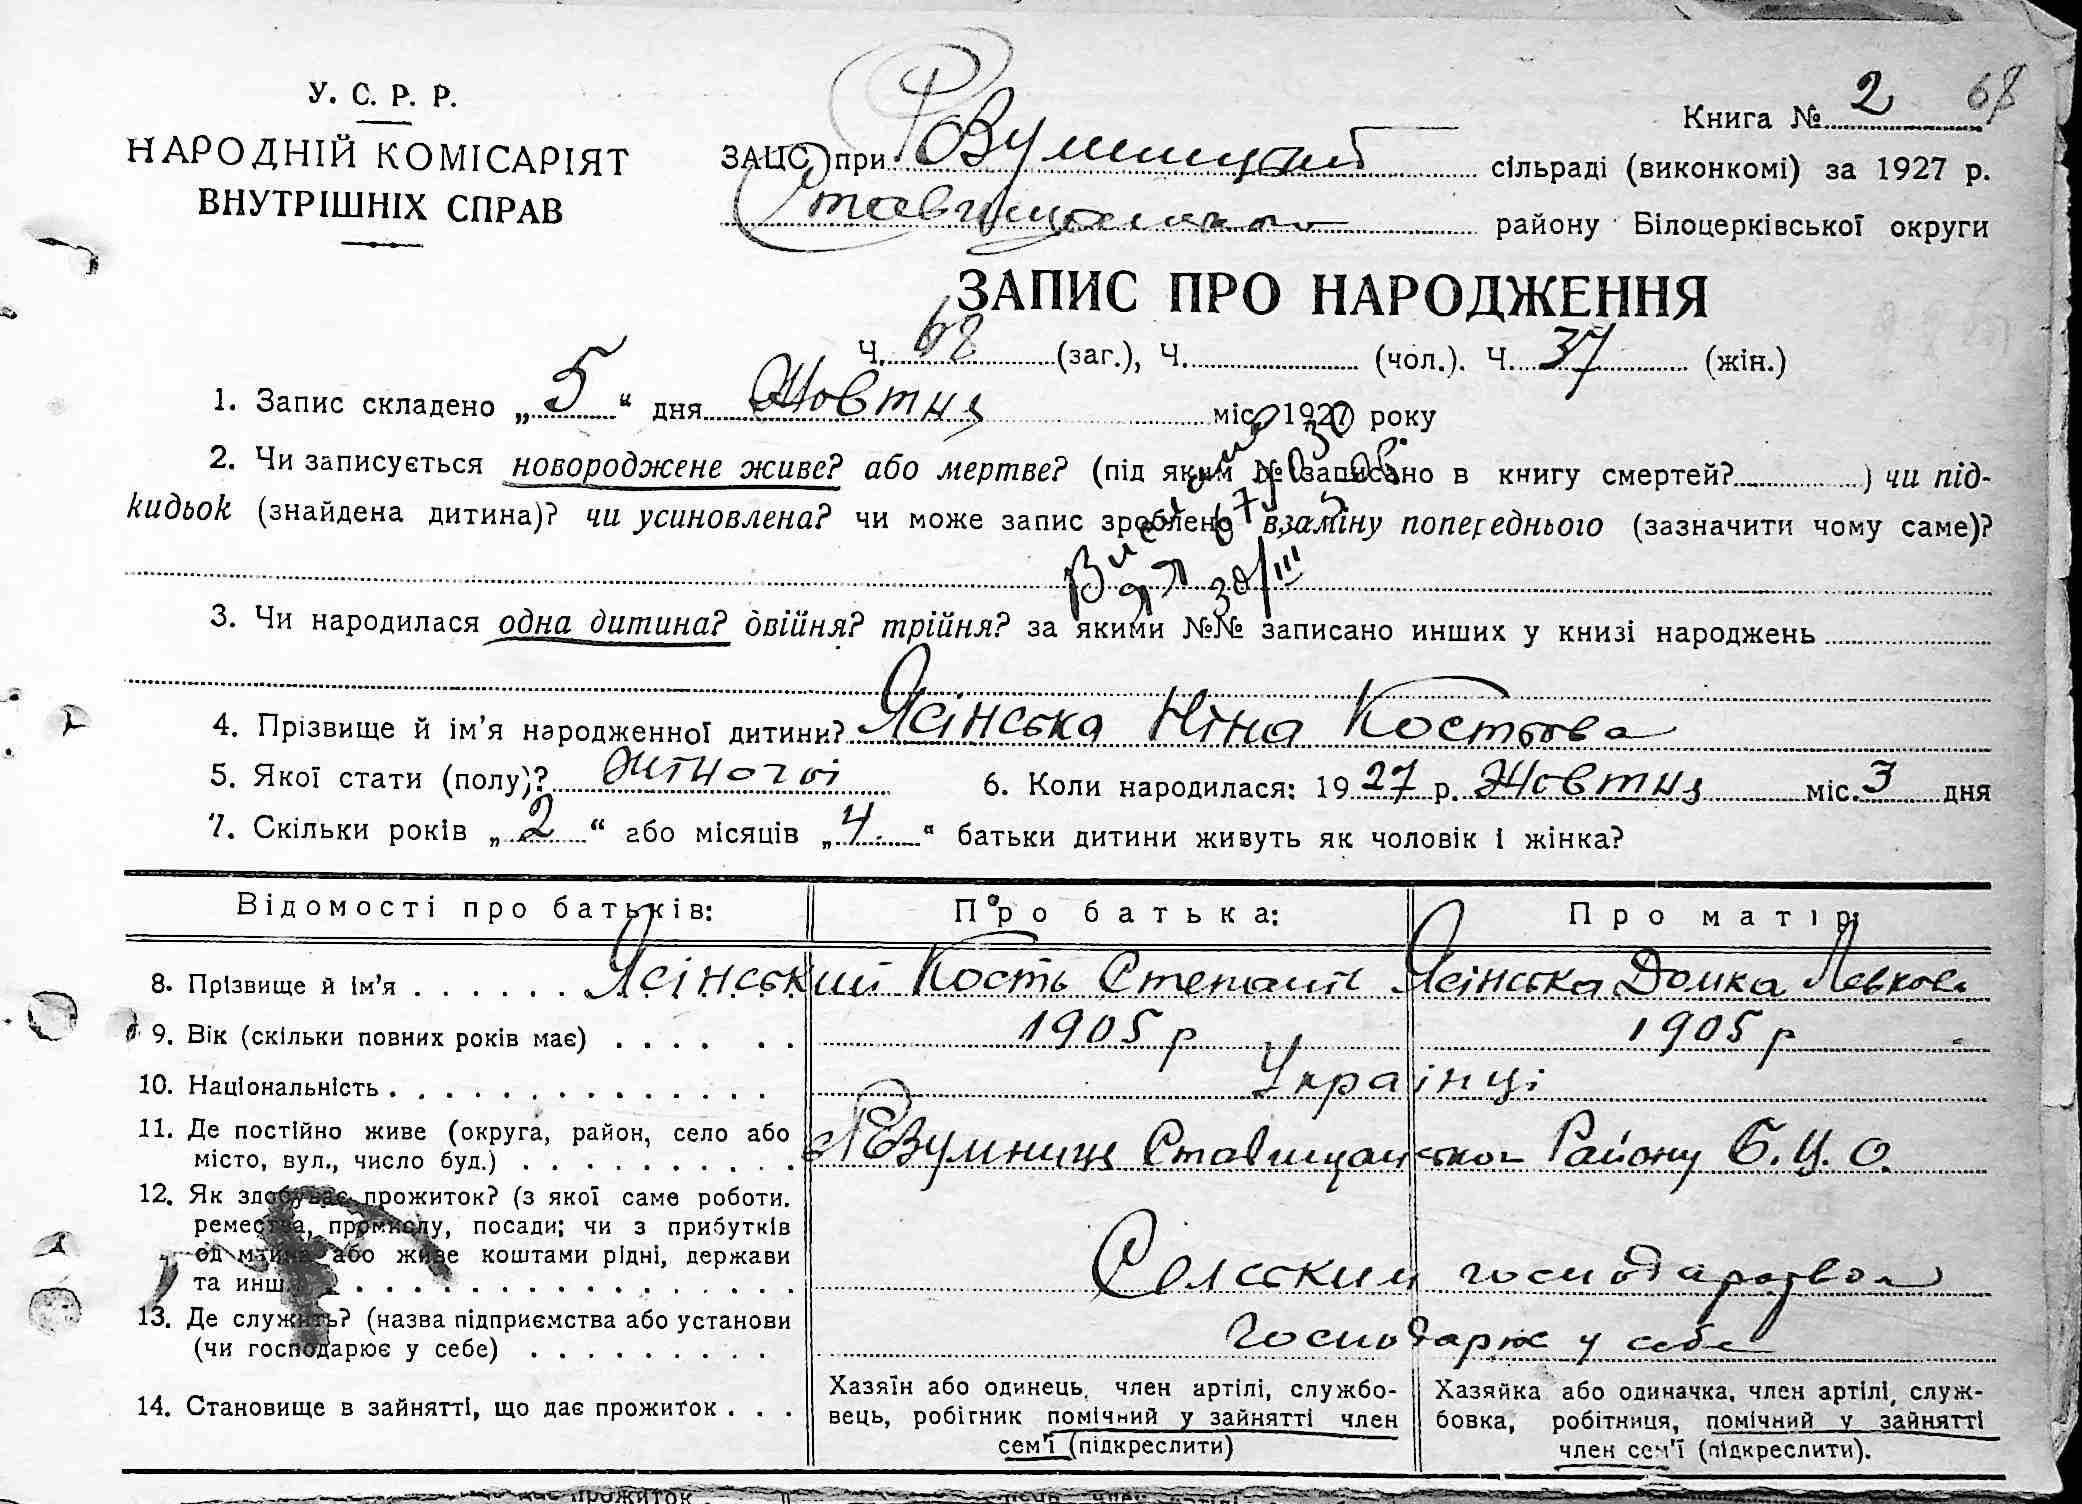 У. С. Р. Р.
НАРОДНІЙ КОМІСАРІЯТ
ВНУТРІШНІХ СПРАВ
Книга № 2 68
ЗАЦС при сільраді (виконкомі) за 1927 р.
району Білоцерківської округи
ЗАПИС ПРО НАРОДЖЕННЯ
Ч. 68 (заг.), Ч. (чол.). Ч. 37 (жін.)
1. Запис складено „ 5 “ дня Жовтня міс. 1927 року
2. Чи записується новороджене живе? або мертве? (під яким № записано в книгу смертей? ) чи під-
кидьок (знайдена дитина)? чи усиновлена? чи може запис зроблено взаміну попереднього (зазначити чому саме)?
30/III
3. Чи народилася одна дитина? двійня? трійня? за якими №№ записано инших у книзі народжень
4. Прізвище й ім’я народженної дитини? Ясінська Ніна Костьова
5. Якої стати (полу)? жіночої 6. Коли народилася: 19 27 р. Жовтня міс. 3 дня
7. Скільки років „ 2 “ або місяців „ 4. “ батьки дитини живуть як чоловік і жінка?
Відомості про батьків: Про батька: Про матір:
8. Прізвище й ім’я . . . . . . Ясінський Кость Степан Ясінська Домка Левков.
9. Вік (скільки повних років має) . . . . . . 1905 р 1905 р
10. Національність . . . . . . . . . . . . . . Українці
11. Де постійно живе (округа, район, село або
місто, вул., число буд.) . . . . . . . . . . Розумниця Ставищанського Району Б. Ц. О.
12. Як здобуває прожиток? (з якої саме роботи,
ремества, промислу, посади; чи з прибутків
од майна або живе коштами рідні, держави
та инш. . . . . . . . . . . . . . . . Сельским господарством
13. Де служить? (назва підприємства або установи
(чи господарює у себе) . . . . . . . . . Господарює у себе
14. Становище в зайнятті, що дає прожиток . . .
Хазяїн або одинець, член артілі, службо-
вець, робітник помічний у зайнятті член
сем’ї (підкреслити)
Хазяйка або одиначка, член артілі, служ-
бовка, робітниця, помічний у зайнятті
член сем’ї (підкреслити).